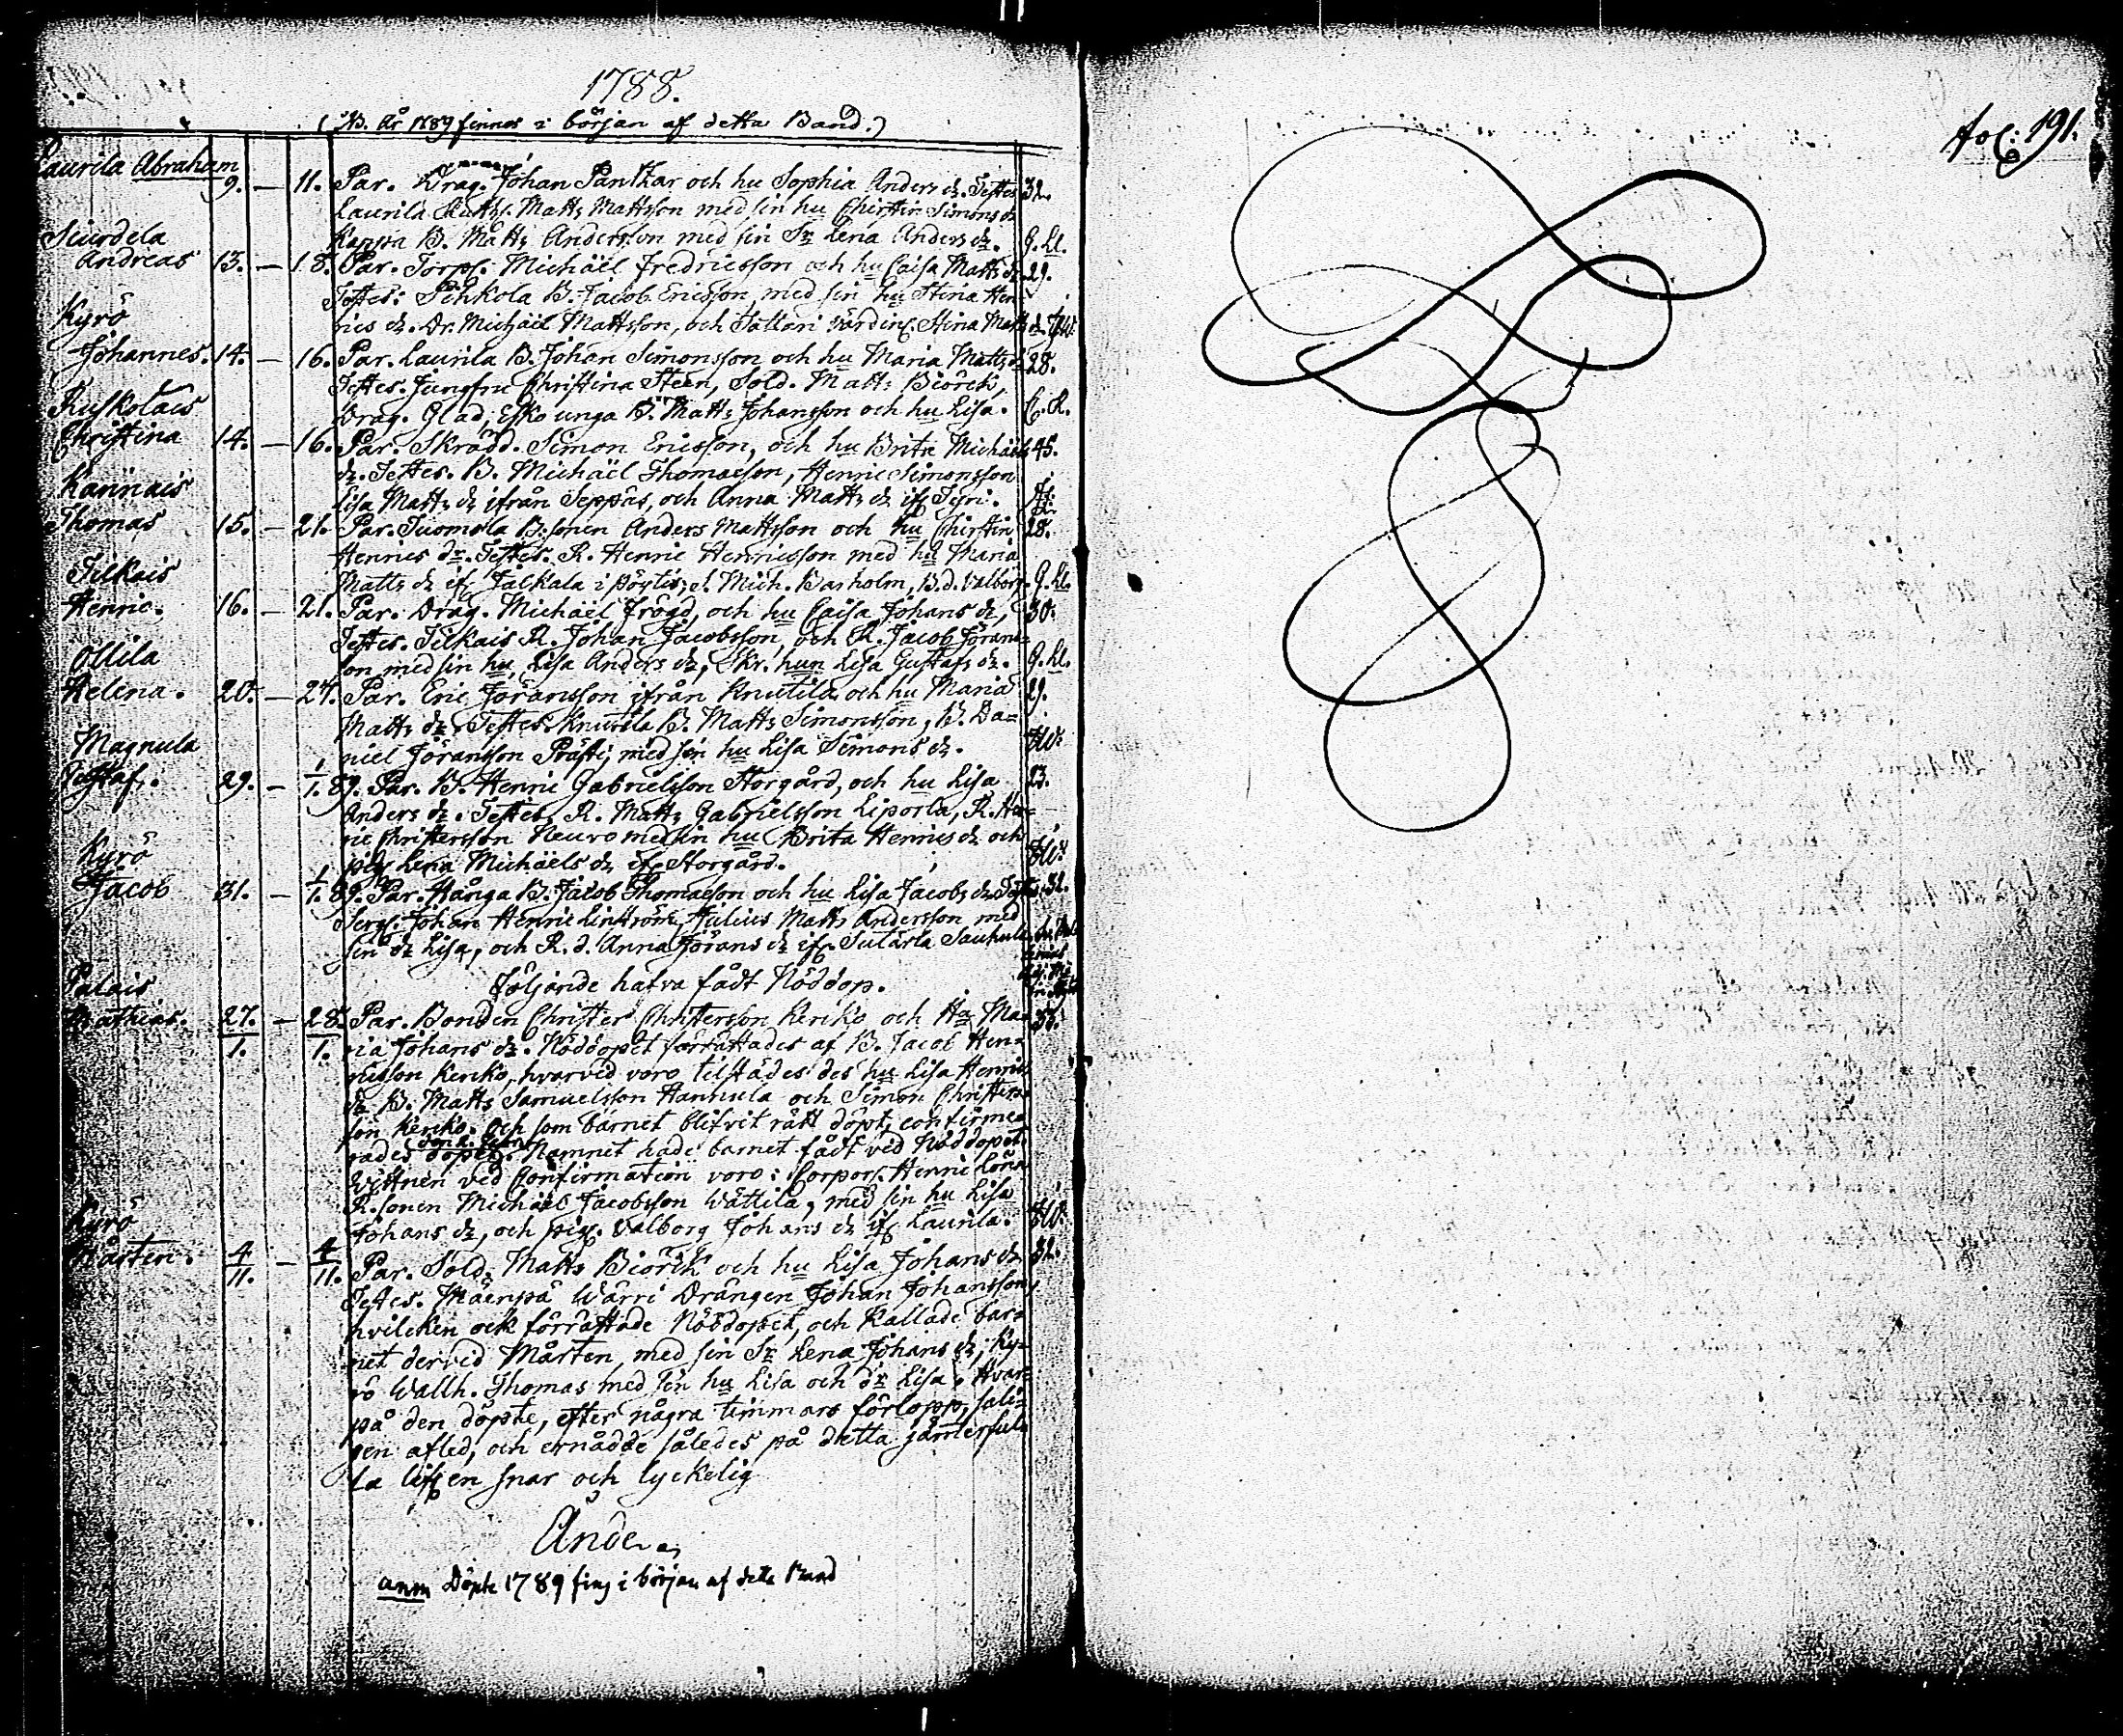 1788.
(NB. År 1789 finnes i början af detta Band.)
Fol: 191.
Laurila Abraham 9. — 11. Par. Drag. Johan Panthar och hu Sophia Anders dr. Testes 32.
Laurila Matts Mattsson med sin hu Christin Simons dr
Kappa B. Matts Andersson med sin Sr Lena Anders dr. G. Ll.
Andreas 13. — 18. Par. Torp. Michäel Fredricsson och hu Caisa Matts dr 29.
Testes: B. Jacob Ericsson med sin hu Stina Hen-
rics dr. Dr. Michäel Mattsson, och Tattari värdin. Stina Matts dr.
Kyrö
Johannes. 14. — 16. Par. Laurila B. Johan Simonsson och hu Maria Matts dr 28.
Testes. Jungfru Christina Steen, Sold. Matts Biörck,
Drag. Glad, Esko unga B. Matts Johansson och hu Lisa.
Ruskolais
Christina 14. — 16. Par. Skrädd. Simon Ericsson, och hu Brita Michäels 45.
dr. Testes. B. Michäel Thomasson, Henric Simonsson
Lisa Matts dr ifrån Seppäs, och Anna Matts dr if Tyri.
Thomas 15. — 21. Par. Tuomola B: sonen Anders Mattsson och hu Christin 28.
Henrics dr. Testes. R. Henric Henricsson med hu Maria
Matts dr if Jalkala i Pöytis, Mich. Barholm, B.d. Valborg. G. Ll.
Tilkais
Henric. 16. — 21. Par. Drag. Michäel Frögd, och hu Caisa Johans dr, 30.
Testes. Tilkais R. Johan Jacobsson, och R. Jacob Jörans-
son med sin hu, Lisa Anders dr, Skr. hun Lisa Gustafs dr. G. Ll.
Ollila
Helena. 20. — 24. Par. Eric Jöransson ifrån Knutila och hu Maria 29.
Matts dr. Testes. Knutila B. Matts Simonsson, B. Da-
niel Jöransson Prästi, med sin hu Lisa Simons dr.
Magnula
Gustaf. 29. — 1/1. 89. Par. B. Henric Gabrielsson Storgård, och hu Lisa 23.
Anders dr. Testes, R. Matts Gabrielsson Liporla, R. Hen-
ric Christersson Neuro med sin hu Brita Henrics dr och
pig. Lena Michäels dr if Storgård.
Kyrö
Jacob 31. — 1/1. 89. Par. Hånga B. Jacob Thomasson och hu Lisa Jacobs dr Testes. 32.
Serg. Johan Henric Lintström, Julius Matts Andersson med
sin dr Lisa, och R. d. Anna Jörans dr if. Sutärla
Följande hafva fådt Nöddop.
Palais
Mathias. 27./1. — 28./1. Par. Bonden Christer Christersson Keriko och Hu Ma- 33.
ria Johans dr. Nöddopet förrättades af B. Jacob Hen-
ricsson Keriko, hvarvid voro tilstädes des hu Lisa Henrics
dr B. Matts Samuelsson Hannula och Simon Christers-
son Keriko. Och som barnet blifvit rätt döpt, confirme-
rades dopet. Namnet hade barnet fådt ved Nöddopet.
Wittnen ved Confirmation voro: Corpor. Henric Lönn
R. sonen Michäel Jacobsson Wättilä, med sin hu Lisa
Johans dr, och pig. Valborg Johans dr if Laurila.
Kyrö
Mårten. 4/11. — 4/11. Par. Sold. Matts Biörck och hu Lisa Johans dr 32.
Testes. Mäenpä Wärri Drängen Johan Johansson,
hvilcken ock förrättade Nöddopet, och kallade bar-
net dervid Mårten, med sin Sr Lena Johans dr, Ky-
rö Wallh. Thomas med sin hu Lisa och dr Lisa. Hvar-
på den döpte, efter några timmars förlopp, sali-
gen afled, och ernådde således på detta jämerful-
la lifven snar och lyckelig
Ände.
anm Döpte 1789 fins i början af detta Band